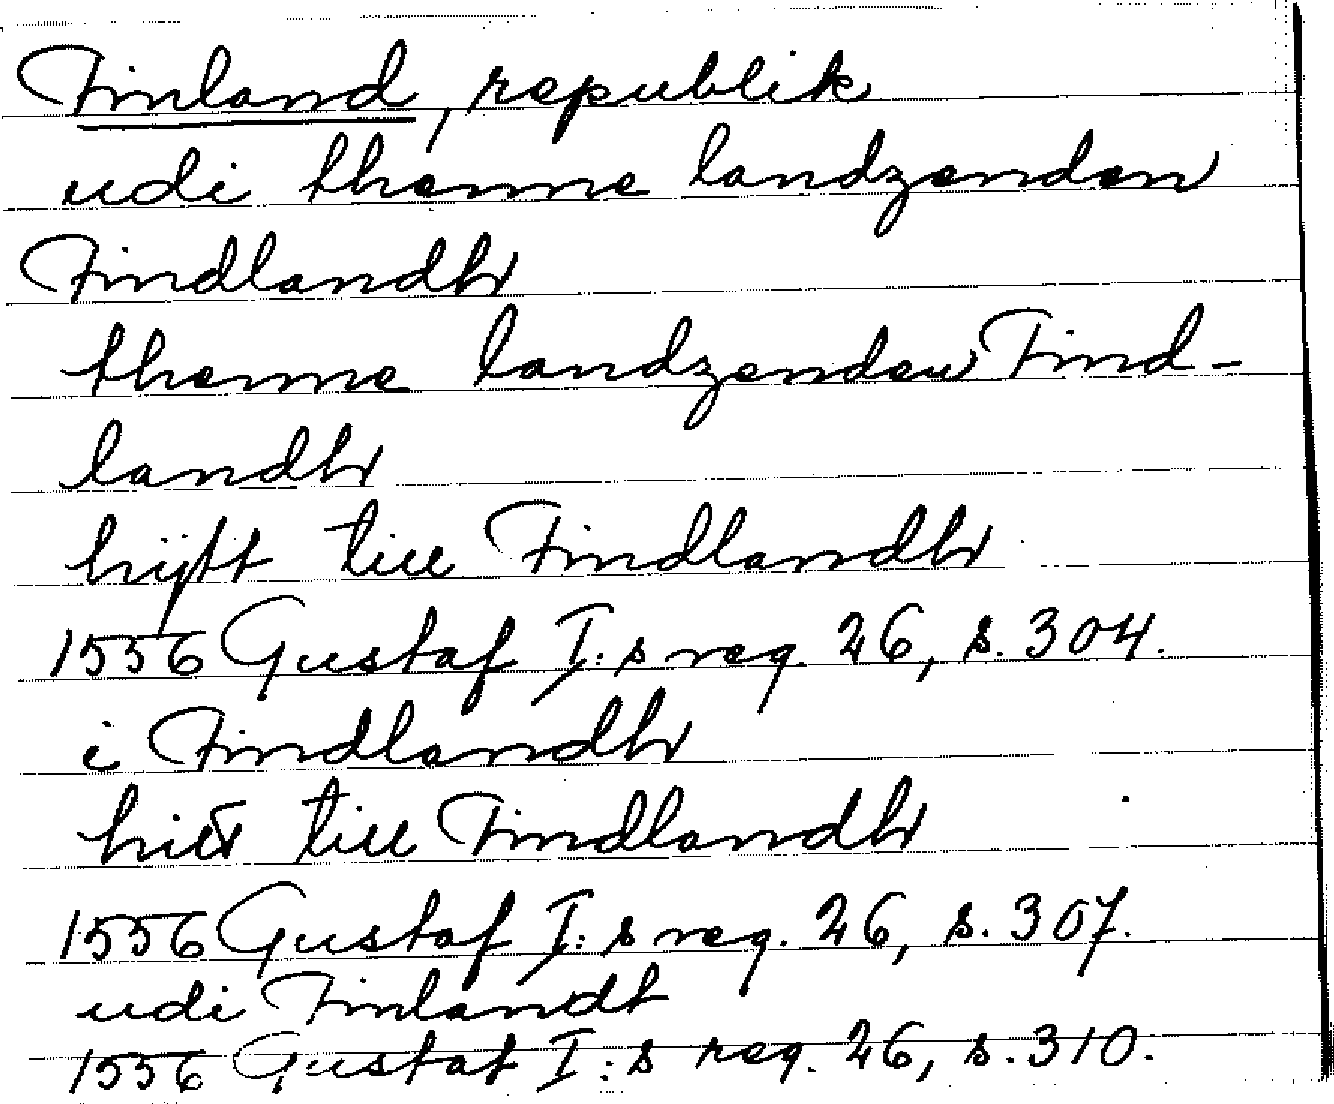 Finland, republik
udi thenne landzenden
Findlandh
thenne landzenden Find-
landh
hijtt till Findlandh
1556 Gustaf I:s reg. 26, s. 304.
i Findlandh
hitt till Findlandh
1556 Gustaf I:s reg. 26, s. 307.
udi Finlandt
1556 Gustaf I:s reg. 26, s. 310.